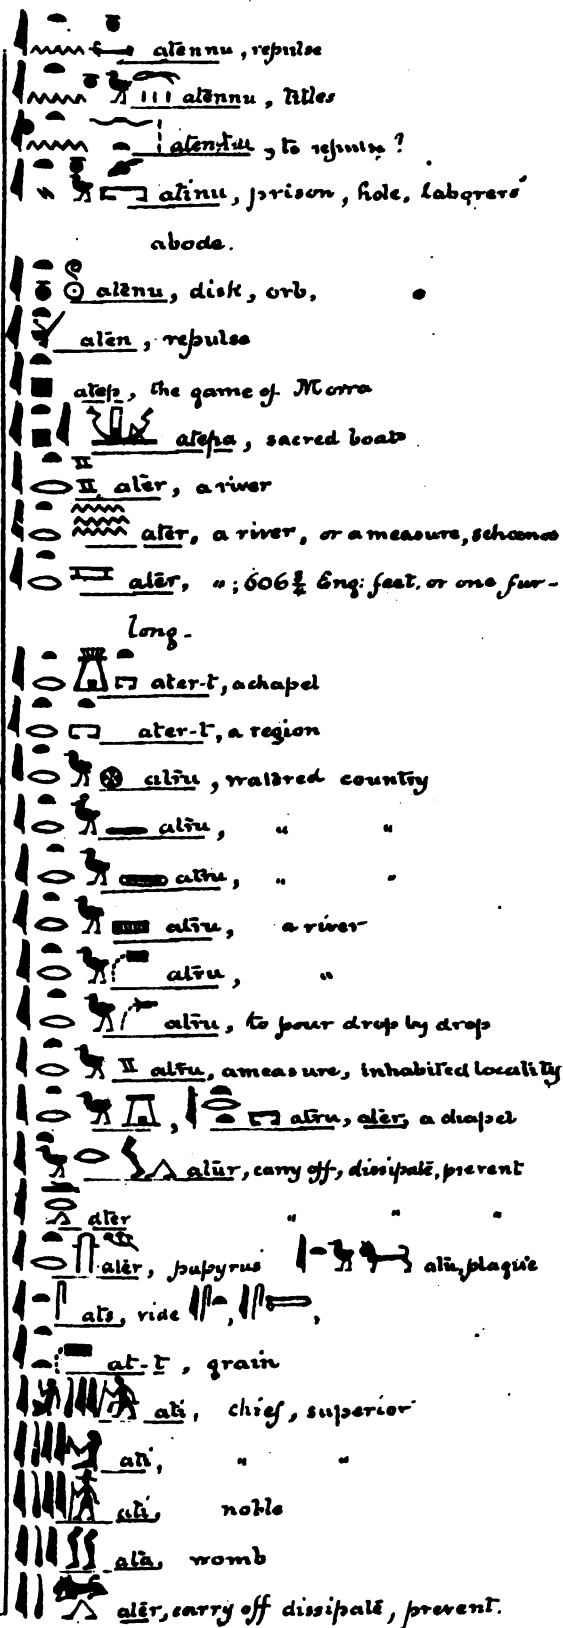 atennu, repulse
atennu, titles
atentu, to repulse?
atinu, prison, hole, laborers'
abode.
atenu, disk, orb,
aten, repulse
atep, the game of Morra
atepa, sacred boat
ater, a river
ater, a river, or a measure, schoenos
ater, „; 606 3/4 Eng: feet. or one fur-
long.
ater-t, a chapel
ater-t, a region
atru, watered country
atru, „ „
atru, „ „
atru, a river
atru, „
atru, to pour drop by drop
atru, a measure, inhabited locality
, atru, ater, a chapel
atur, carry off, dissipate, prevent
ater „ „ „
ater, pupyrus atu, plaque
ats, ride , ,
at-t, grain
ati, chief, superior
ati, „ „
ati, noble
ata, womb
ater, carry off dissipate, prevent.